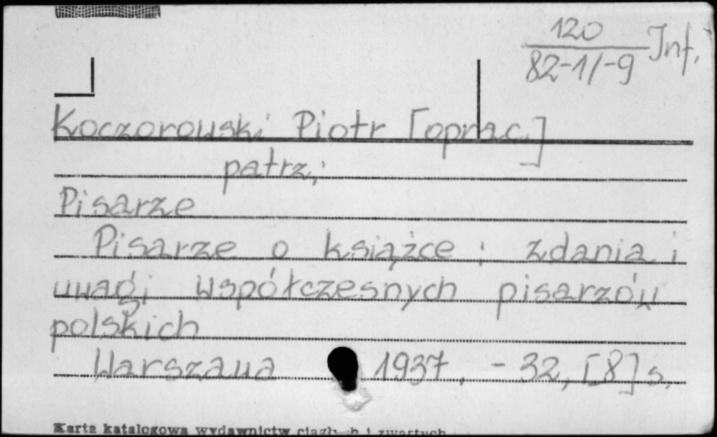 120 Inf.
82-1/-9
Koczorowski Piotr [oprac.]
patrz:
Pisarze
Pisarze o książce : zdania i
uwagi współczesnych pisarzów
polskich
Warszawa 1937. - 32, [8] s.
Karta katalogowa wydawnictw ciągłych i zwartych